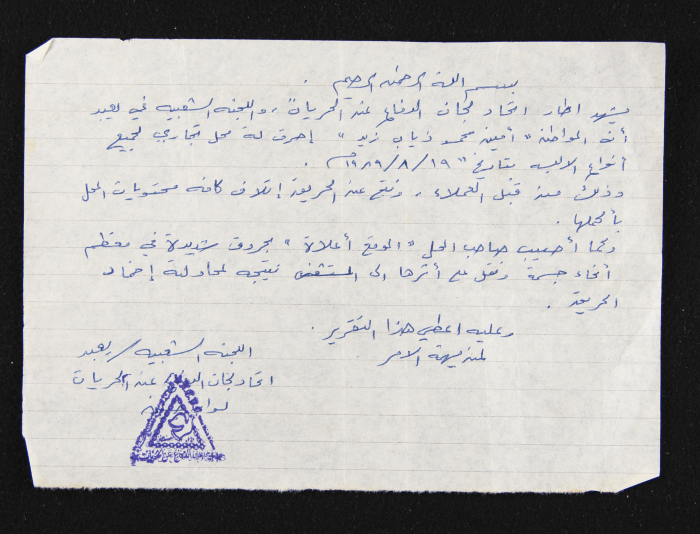 بسم الله الرحمن الرحيم .
يشهد اطار اتحاد لجان الدفاع عن الحريات ، واللجنه الشعبيه في يعبد
أن المواطن " أمين محمد ذياب زيد " إحرق له محل تجاري لجميع
أنواع الالبسه بتاريخ " ١٩ / ٨ / ١٩٨٩م .
وذلك من قبل العملاء ، ونتج عن الحريق إتلاف كافه محتويات المحل
بأكملها .
وكما أصيب صاحب المحل " الموقع أعلاة " بحروق شديدة في معظم
أنحاء جسمة ونقل على أثرها الى المستشفى نتيجه لمحاولة إخماد
الحريق .
وعليه اعطي هذا التقرير .
لمن يهمة الأمر
اللجنه الشعبيه / يعبد
اتحاد لجان الدفاع عن الحريات
لواء جنين